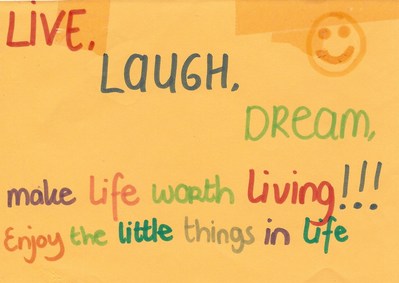 LIVE,
LAUGH,
DREAM,
make life worth living!!!
Enjoy the little things in life